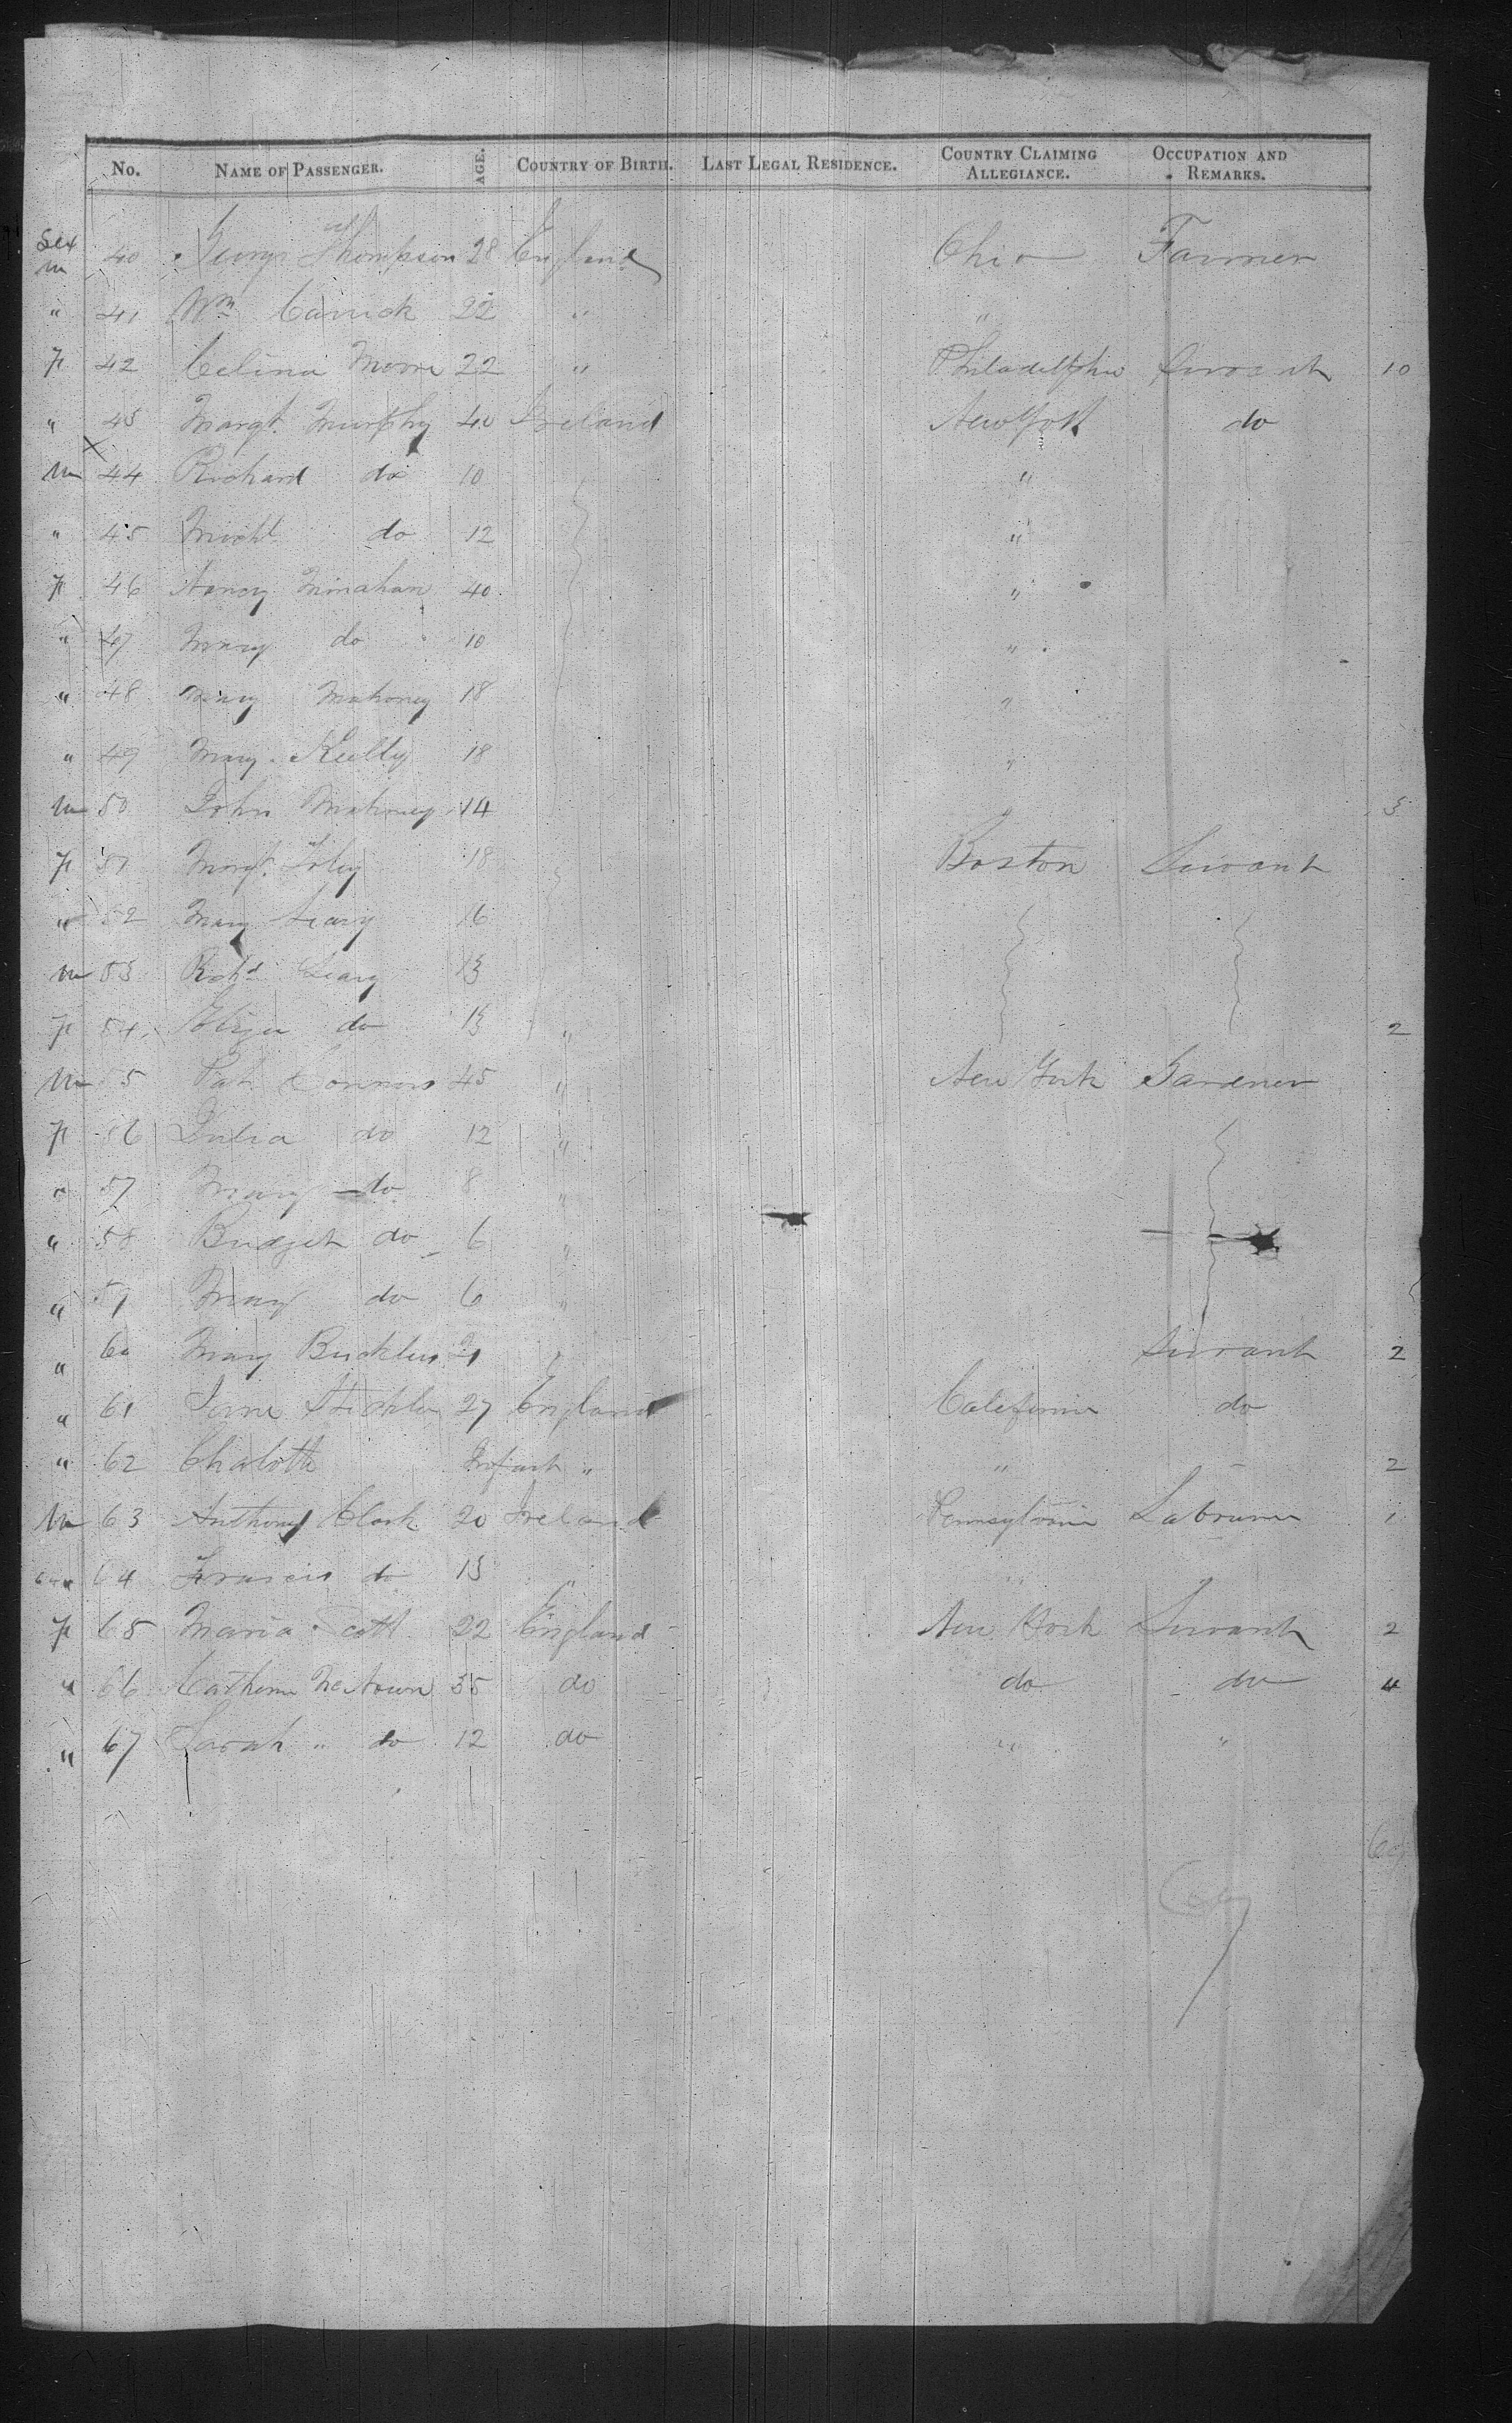 No. NAME OF PASSENGER. AGE. COUNTRY OF BIRTH. LAST LEGAL RESIDENCE. COUNTRY CLAIMING ALLEGIANCE. OCCUPATION AND REMARKS.
Sex
m 40 George Thompson 28 England Ohio Farmer
" 41 Wm Carrick 22 " "
F 42 Celina Moore 22 " Philadelphia Servant 10
" 43 Margt. Murphy 40 Ireland New York do
m 44 Richard do 10 "
" 45 Michl do 12 "
F 46 Nancy Minahan 40 "
" 47 Mary do 10 "
" 48 Mary Mahoney 18 "
" 49 Mary Kelly 18 "
m 50 John Mahoney 14 5
F 51 Margt. Foley 18 Boston Servant
" 52 Mary Leary 16
m 53 Richd Leary 13
F 54 Eliza do 13 " 2
m 55 Pat Connors 45 " New York Gardener
F 56 Julia do 12 "
" 57 Mary do 8 "
" 58 Bridget do 6 "
" 59 Mary do 6 "
" 60 Mary 21 " Servant 2
" 61 Jane 27 England California do
" 62 Charlotte Infant " " 2
m 63 Anthony Clark 20 Ireland Pennsylvania Labourer 1
64 Francis do 13 "
F 65 Maria Scott 22 England New York Servant 2
" 66 Catherine 35 do do do 4
" 67 Sarah " do 12 do " "
67